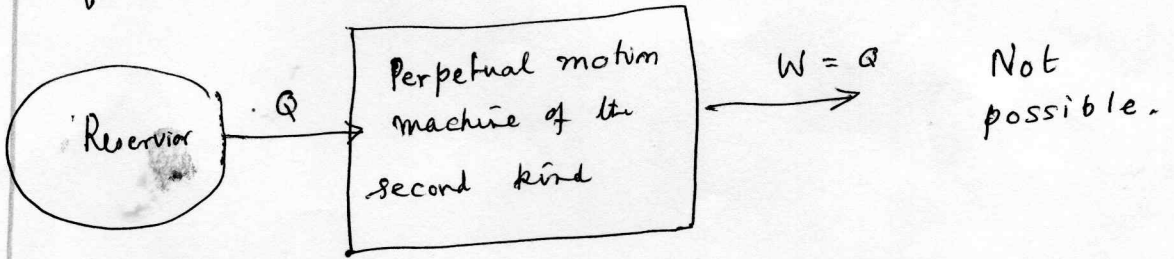 Reservior
Q
Perpetual motion
machine of the
second kind
W = Q
Not
possible.